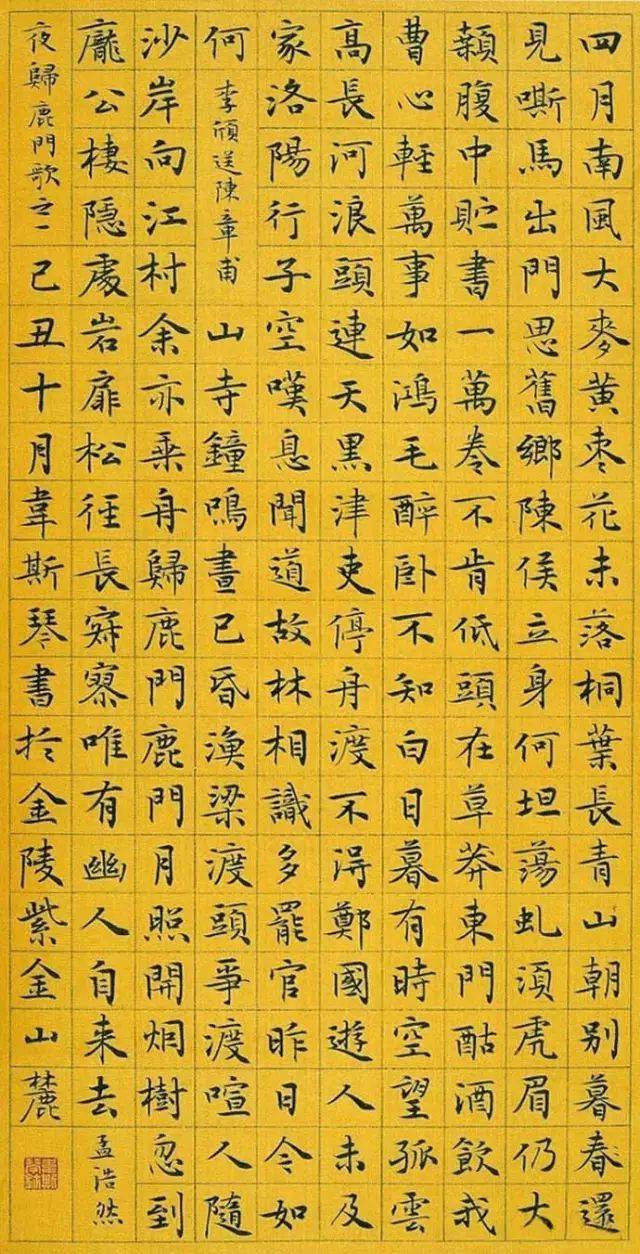 四月南風大麥黃棗花未落桐葉長青山朝别暮春還
見嘶馬出門思舊鄉陳侯立身何坦蕩虬須虎眉仍大
顙腹中貯書一萬卷不肯低頭在草莽東門酤酒飲我
曹心輕萬事如鴻毛醉卧不知白日暮有時空望孤雲
高長河浪頭連天黑津吏停舟渡不得鄭國遊人未及
家洛陽行子空嘆息聞道故林相識多罷官昨日今如
何 李頎送陳章甫 山寺鐘鳴晝已昏漁梁渡頭爭渡喧人隨
沙岸向江村余亦乘舟歸鹿門鹿門月照開烟樹忽到
龐公棲隱處岩扉松徑長寂寥唯有幽人自来去 孟浩然
夜歸鹿門歌之一 己丑十月韋斯琴書於金陵紫金山麓